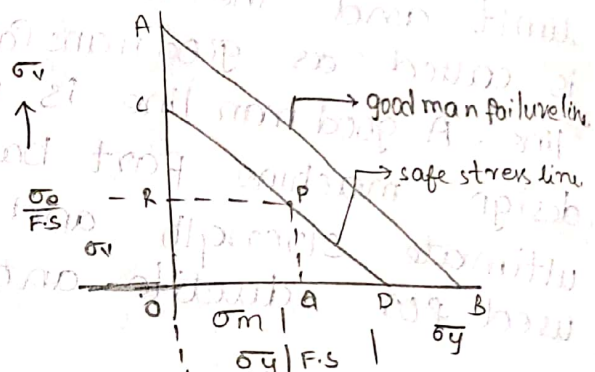 A
σv
C
good man failure line
safe stress line
σe
F.S
R
P
σv
O
σm
Q
D
B
σy
σy | F.S